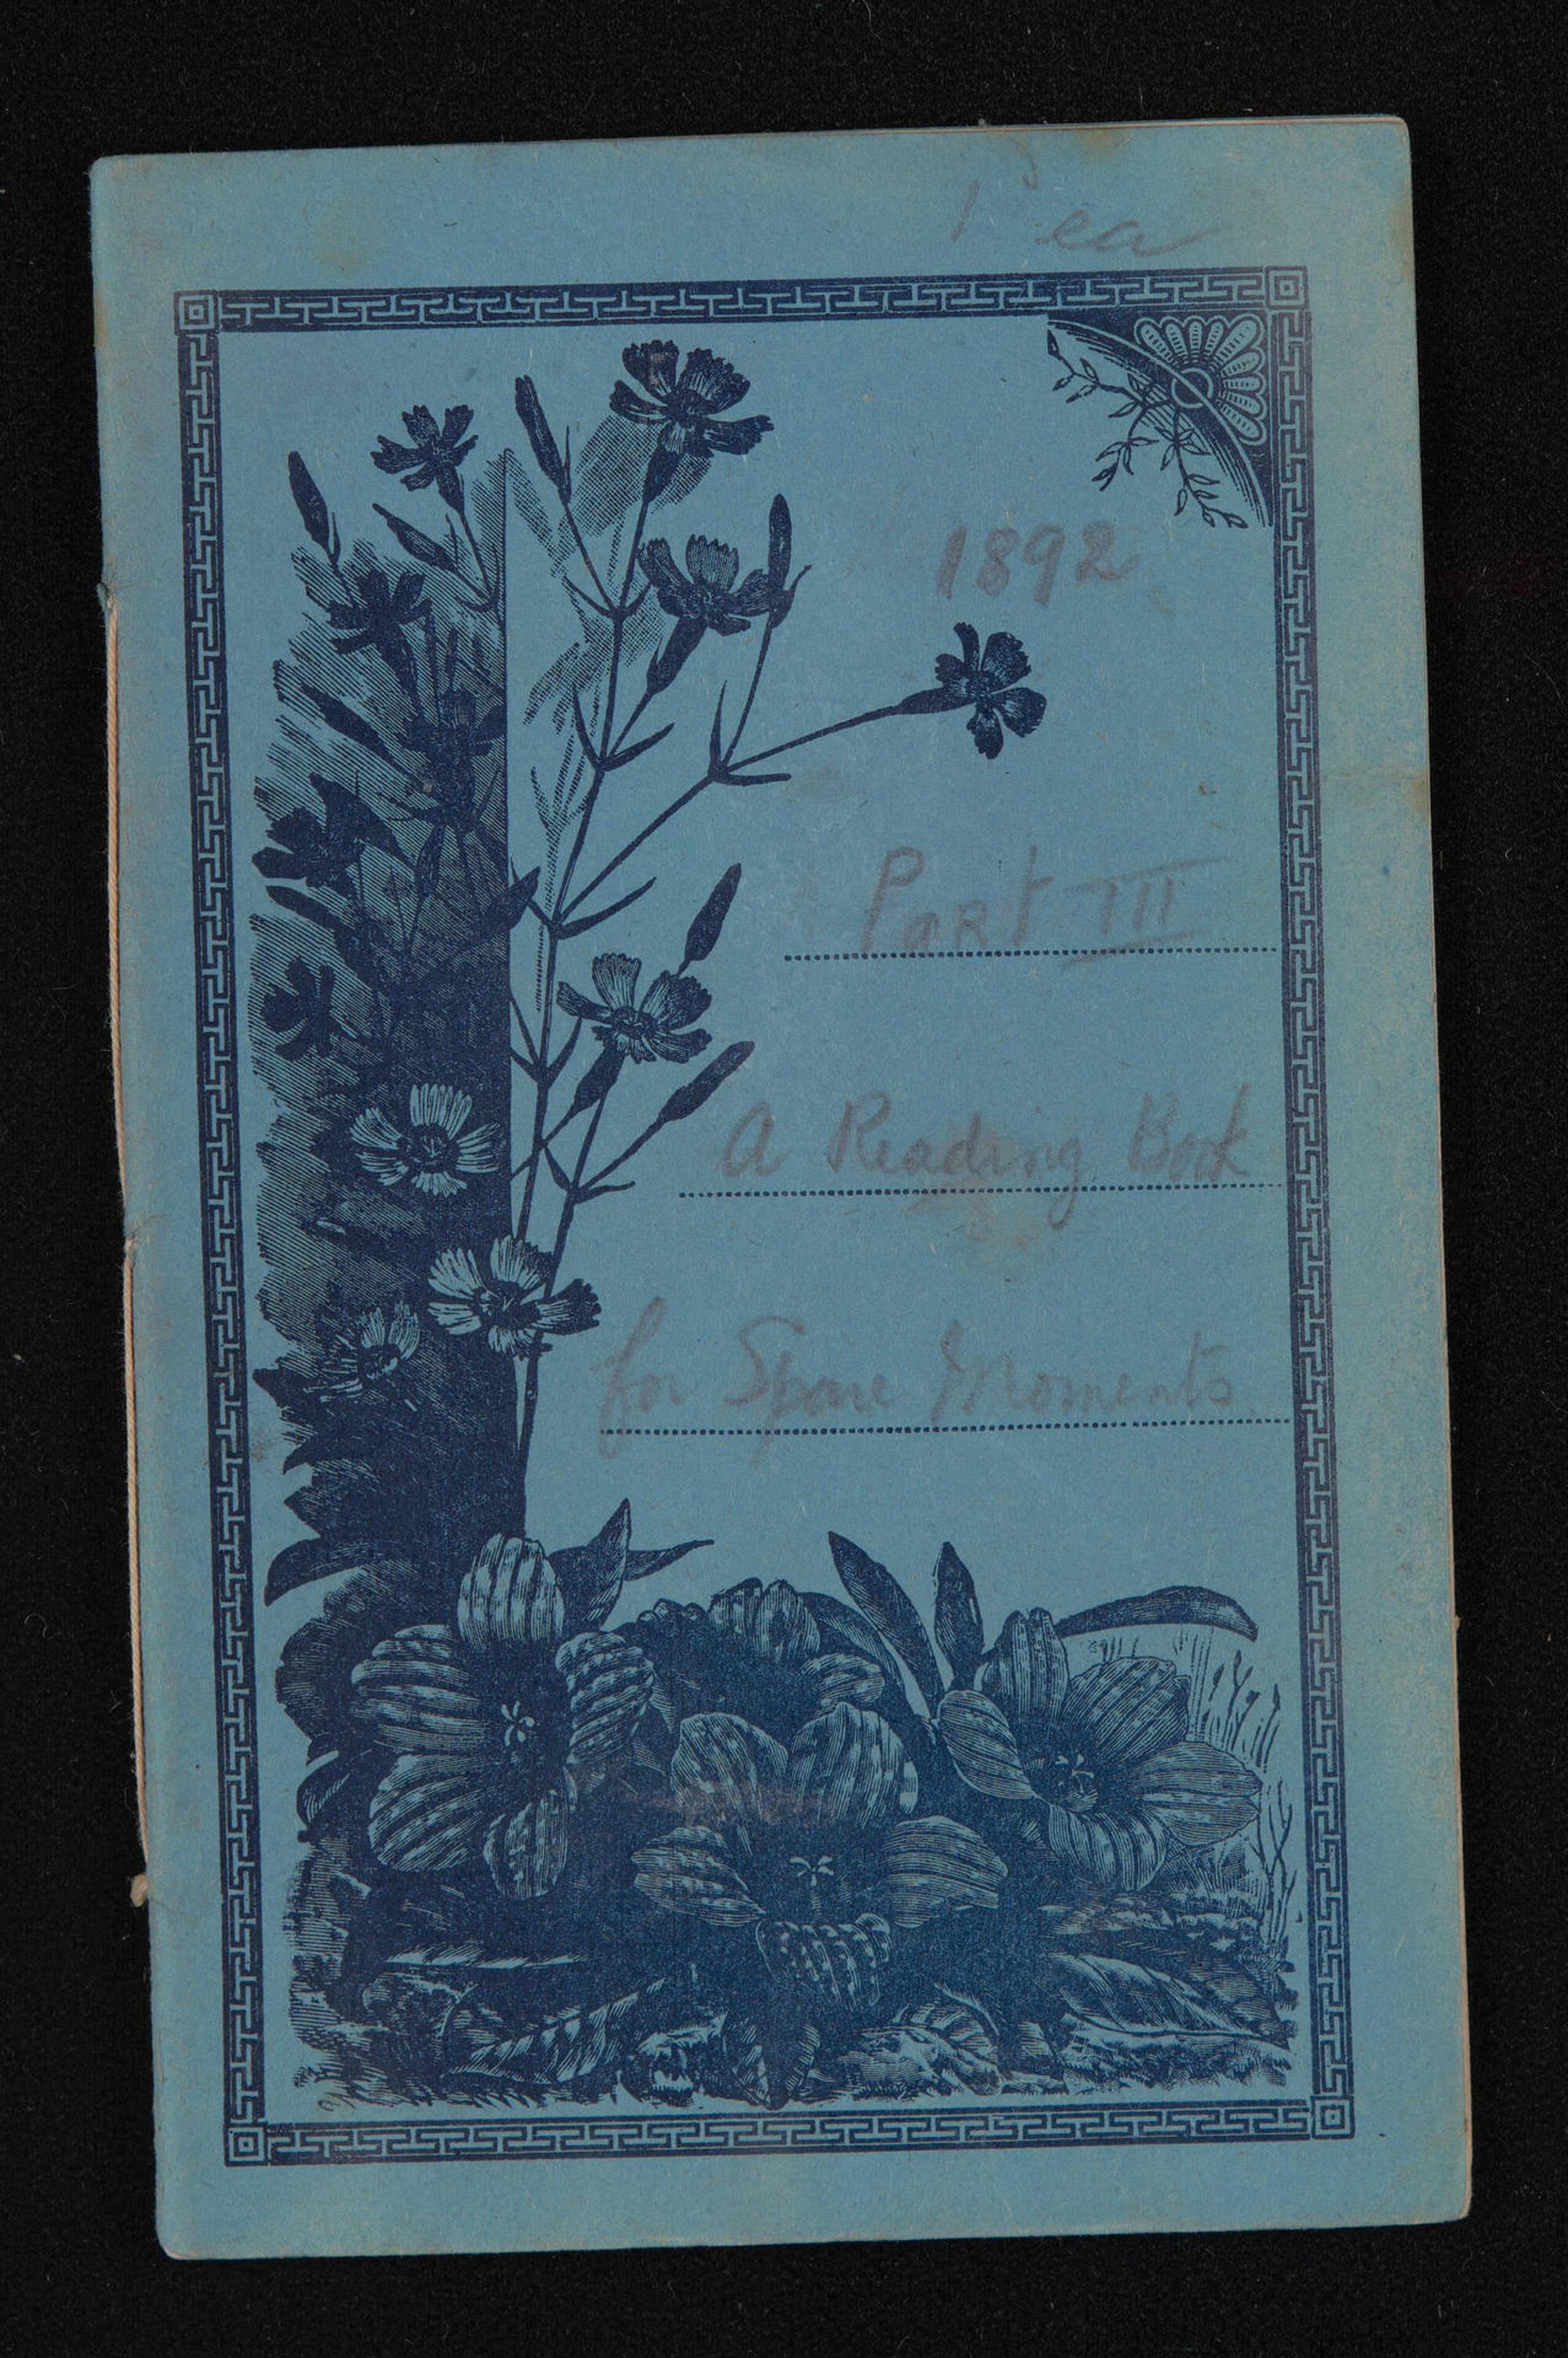 1d ea
1892
Part III
A Reading Book
for Spare Moments.